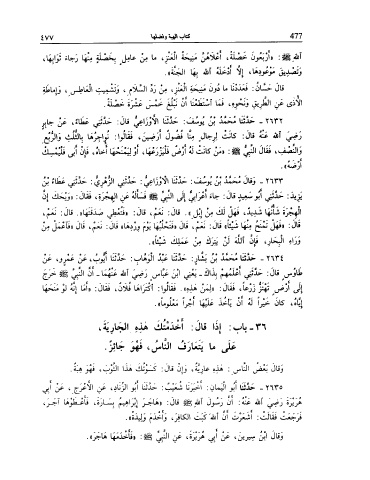 ٤٧٧ كتاب الهبة وفضلها 477
الله ﷺ: «أَرْبَعُونَ خَصْلَةً، أَعْلَاهُنَّ مَنِيحَةُ الْعَنْزِ، مَا مِنْ عَامِلٍ يَعْمَلُ بِخَصْلَةٍ مِنْهَا رَجَاءَ ثَوَابِهَا،
وَتَصْدِيقَ مَوْعُودِهَا، إِلَّا أَدْخَلَهُ اللهُ بِهَا الْجَنَّةَ».
قَالَ حَسَّانُ: فَعَدَدْنَا مَا دُونَ مَنِيحَةِ الْعَنْزِ، مِنْ رَدِّ السَّلَامِ، وَتَشْمِيتِ الْعَاطِسِ، وَإِمَاطَةِ
الْأَذَى عَنِ الطَّرِيقِ وَنَحْوِهِ، فَمَا اسْتَطَعْنَا أَنْ نَبْلُغَ خَمْسَ عَشْرَةَ خَصْلَةً.
٢٦٣٢ - حَدَّثَنَا مُحَمَّدُ بْنُ يُوسُفَ: حَدَّثَنَا الْأَوْزَاعِيُّ قَالَ: حَدَّثَنِي عَطَاءٌ، عَنْ جَابِرٍ
رَضِيَ اللهُ عَنْهُ قَالَ: كَانَتْ لِرِجَالٍ مِنَّا فُضُولُ أَرَضِينَ، فَقَالُوا: نُؤَاجِرُهَا بِالثُّلُثِ وَالرُّبُعِ
وَالنِّصْفِ، فَقَالَ النَّبِيُّ ﷺ: «مَنْ كَانَتْ لَهُ أَرْضٌ فَلْيَزْرَعْهَا، أَوْ لِيَمْنَحْهَا أَخَاهُ، فَإِنْ أَبَى فَلْيُمْسِكْ
أَرْضَهُ».
٢٦٣٣ - وَقَالَ مُحَمَّدُ بْنُ يُوسُفَ: حَدَّثَنَا الْأَوْزَاعِيُّ: حَدَّثَنِي الزُّهْرِيُّ: حَدَّثَنِي عَطَاءُ بْنُ
يَزِيدَ: حَدَّثَنِي أَبُو سَعِيدٍ قَالَ: جَاءَ أَعْرَابِيٌّ إِلَى النَّبِيِّ ﷺ فَسَأَلَهُ عَنِ الْهِجْرَةِ، فَقَالَ: «وَيْحَكَ إِنَّ
الْهِجْرَةَ شَأْنُهَا شَدِيدٌ، فَهَلْ لَكَ مِنْ إِبِلٍ». قَالَ: نَعَمْ، قَالَ: «فَتُعْطِي صَدَقَتَهَا». قَالَ: نَعَمْ،
قَالَ: «فَهَلْ تَمْنَحُ مِنْهَا شَيْئًا». قَالَ: نَعَمْ، قَالَ «فَتَحْلُبُهَا يَوْمَ وِرْدِهَا» قَالَ: نَعَمْ، قَالَ: «فَاعْمَلْ مِنْ
وَرَاءِ الْبِحَارِ، فَإِنَّ اللهَ لَنْ يَتِرَكَ مِنْ عَمَلِكَ شَيْئًا».
٢٦٣٤ - حَدَّثَنَا مُحَمَّدُ بْنُ بَشَّارٍ: حَدَّثَنَا عَبْدُ الْوَهَّابِ: حَدَّثَنَا أَيُّوبُ، عَنْ عَمْرٍو، عَنْ
طَاوُسٍ قَالَ: حَدَّثَنِي أَعْلَمُهُمْ بِذَاكَ - يَعْنِي ابْنَ عَبَّاسٍ رَضِيَ اللهُ عَنْهُمَا - أَنَّ النَّبِيَّ ﷺ خَرَجَ
إِلَى أَرْضٍ تَهْتَزُّ زَرْعًا، فَقَالَ: «لِمَنْ هَذِهِ». فَقَالُوا: اكْتَرَاهَا فُلَانٌ، فَقَالَ: «أَمَا إِنَّهُ لَوْ مَنَحَهَا
إِيَّاهُ، كَانَ خَيْرًا لَهُ مِنْ أَنْ يَأْخُذَ عَلَيْهَا أَجْرًا مَعْلُومًا».
٣٦ - باب: إِذَا قَالَ: أَخْدَمْتُكَ هَذِهِ الْجَارِيَةَ،
عَلَى مَا يَتَعَارَفُ النَّاسُ، فَهُوَ جَائِزٌ.
وَقَالَ بَعْضُ النَّاسِ: هَذِهِ عَارِيَّةٌ، وَإِنْ قَالَ: كَسَوْتُكَ هَذَا الثَّوْبَ، فَهُوَ هِبَةٌ.
٢٦٣٥ - حَدَّثَنَا أَبُو الْيَمَانِ: أَخْبَرَنَا شُعَيْبٌ: حَدَّثَنَا أَبُو الزِّنَادِ، عَنِ الْأَعْرَجِ، عَنْ أَبِي
هُرَيْرَةَ رَضِيَ اللهُ عَنْهُ: أَنَّ رَسُولَ اللهِ ﷺ قَالَ: «هَاجَرَ إِبْرَاهِيمُ بِسَارَةَ، فَأَعْطَوْهَا آجَرَ،
فَرَجَعَتْ فَقَالَتْ: أَشَعَرْتَ أَنَّ اللهَ كَبَتَ الْكَافِرَ، وَأَخْدَمَ وَلِيدَةً».
وَقَالَ ابْنُ سِيرِينَ، عَنْ أَبِي هُرَيْرَةَ، عَنِ النَّبِيِّ ﷺ: «فَأَخْدَمَهَا هَاجَرَ».